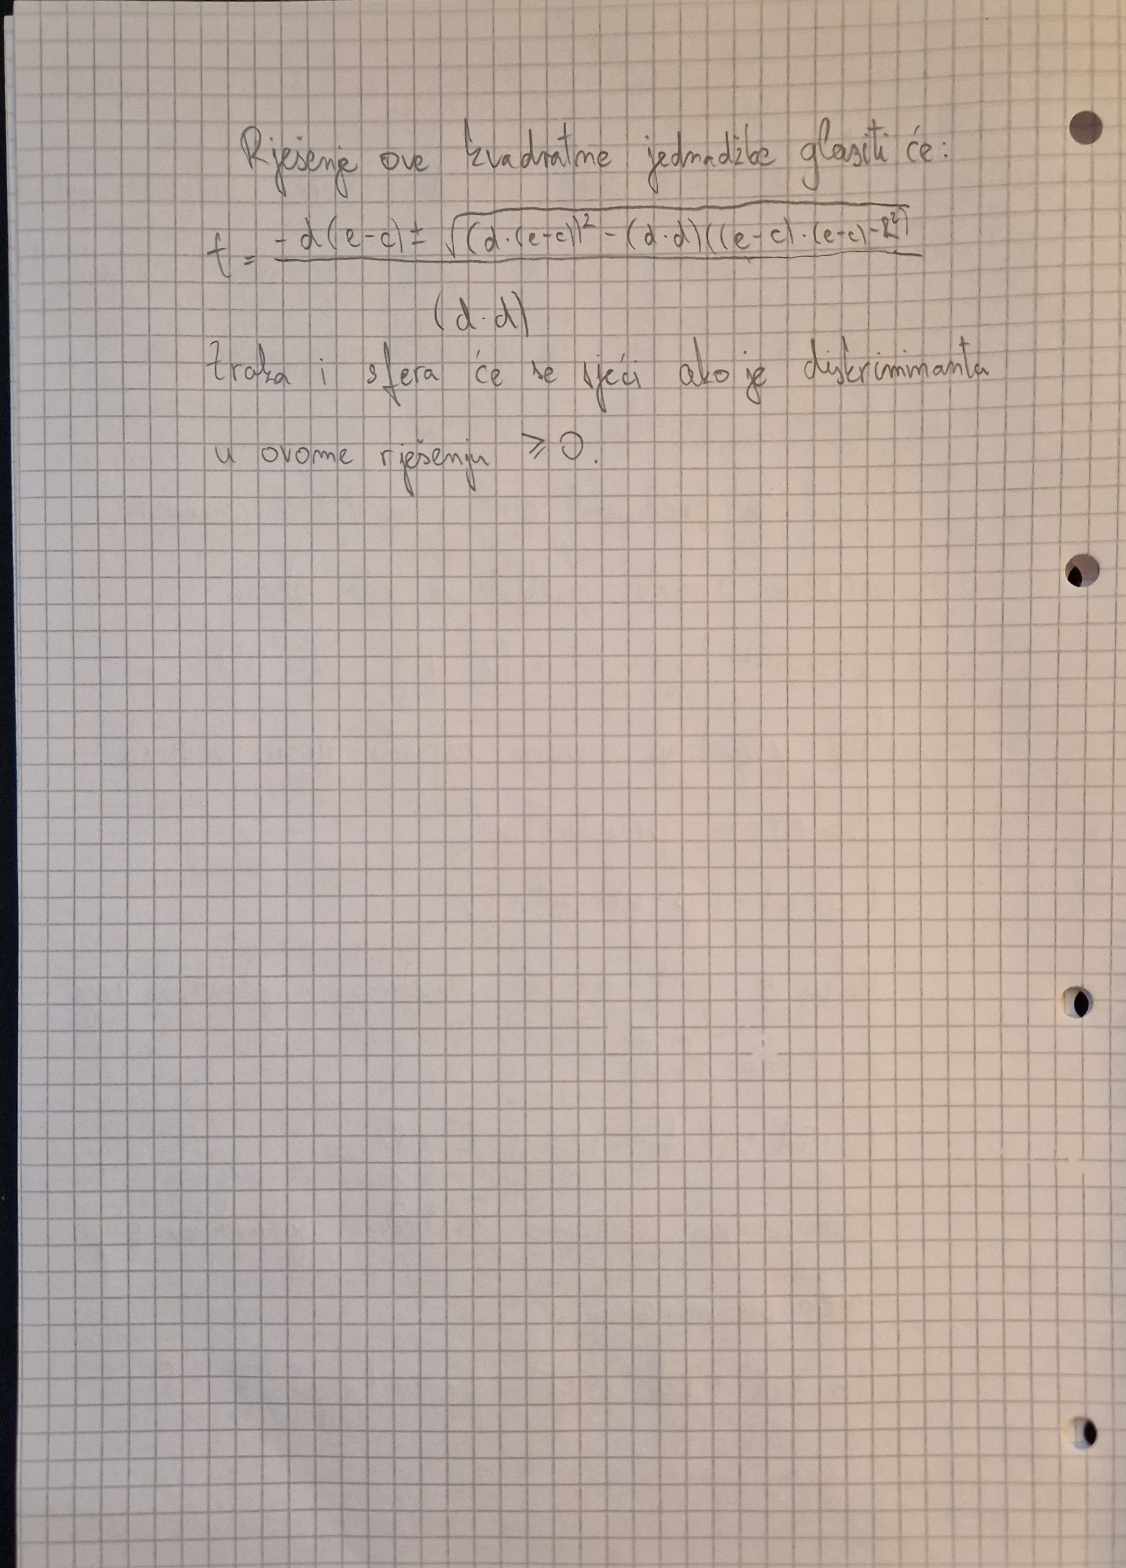 Rješenje ove kvadratne jednadžbe glasiti će:
t = -d(e-c) ± √((d·(e-c))² - (d·d)((e-c)·(e-c)-R²))
(d·d)
Zraka i sfera će se sjeći ako je diskriminanta
u ovome rješenju ≥ 0.